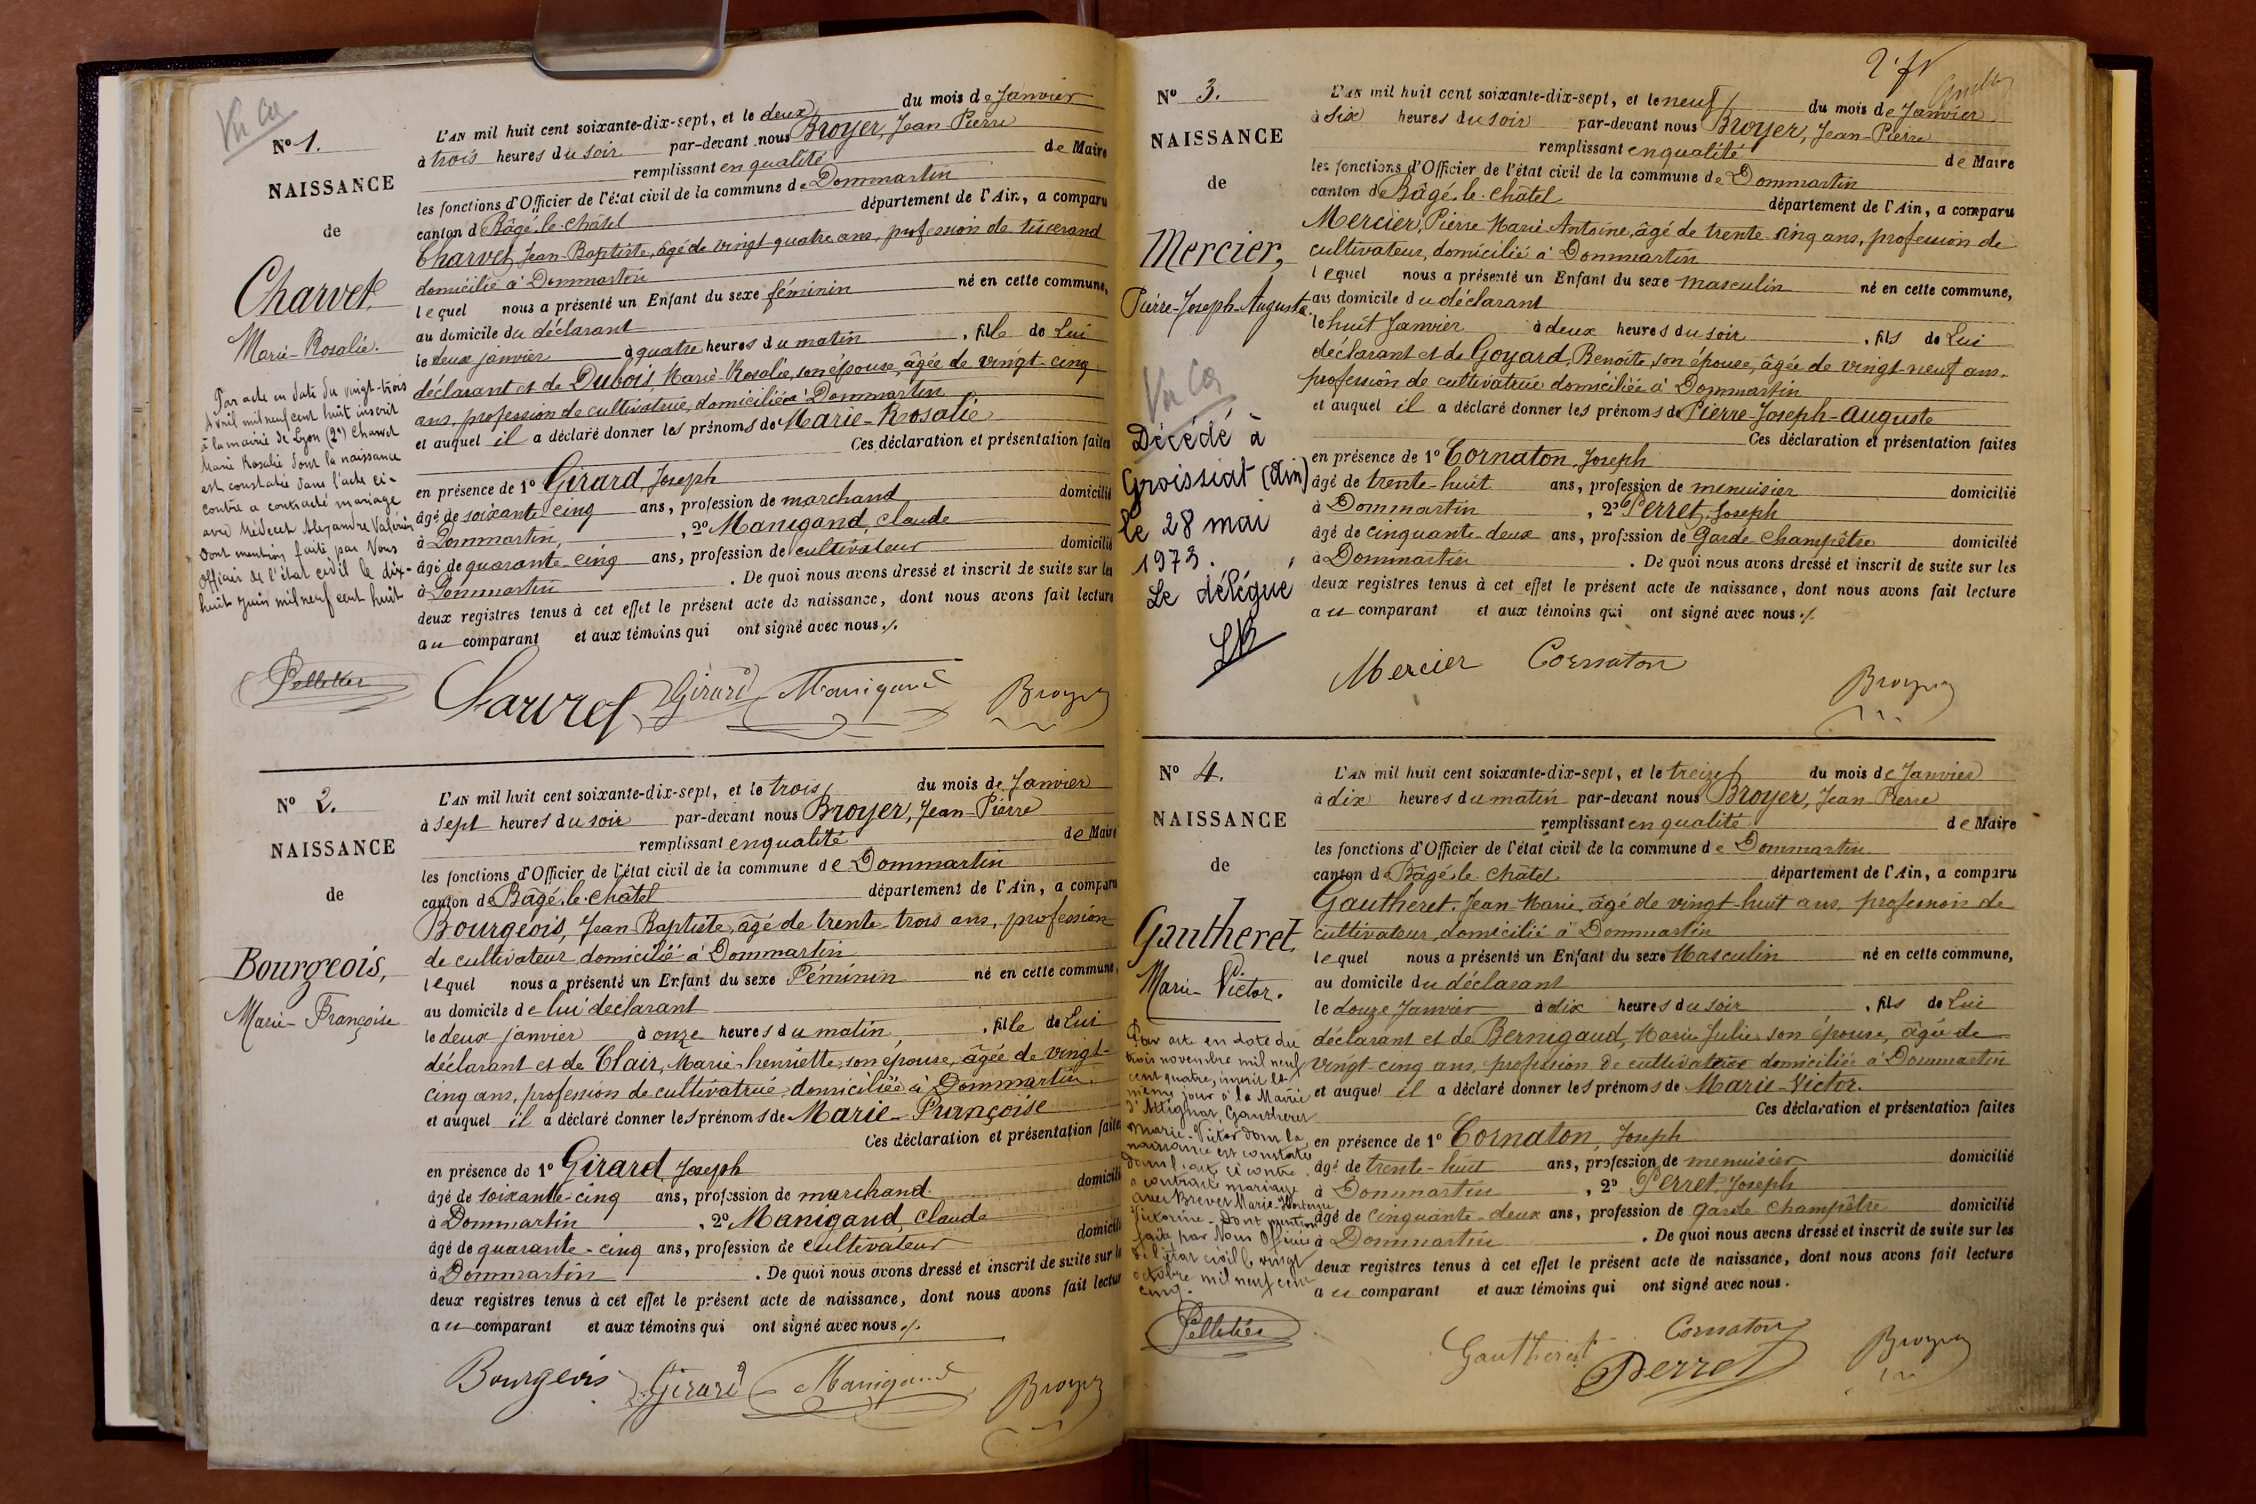 Nº 1.
NAISSANCE
de
Charvet
Marie-Rosalie.
Par acte en date du vingt-trois
Avril mil neuf cent huit inscrit
à la mairie de Lyon (2e) Charvet
Marie Rosalie dont la naissance
est constatée dans l'acte ci-
contre a contracté mariage
avec Alexandre
Dont mention faite par Nous
officier de l'état civil le dix-
huit juin mil neuf cent huit
Pelletier
L'AN mil huit cent soixante-dix-sept, et le deux du mois de Janvier
à trois heures du soir par-devant nous Broyer, Jean Pierre
remplissant en qualité de Maire
les fonctions d'Officier de l'état civil de la commune de Dommartin
canton d Bâgé-le-châtel département de l'Ain, a comparu
Charvet Jean-Baptiste, âgé de vingt quatre ans, profession de tisserand
domicilié à Dommartin
lequel nous a présenté un Enfant du sexe féminin né en cette commune,
au domicile du déclarant
le deux janvier à quatre heures du matin, fille de Lui
déclarant et de Dubois, Marie-Rosalie, son épouse, âgée de vingt-cinq
ans, profession de cultivatrice, domiciliée à Dommartin
et auquel il a déclaré donner les prénoms de Marie-Rosalie
Ces déclaration et présentation faites
en présence de 1º Girard, Joseph
âgé de soixante-cinq ans, profession de marchand domicilié
à Dommartin, 2º Manigand, Claude
âgé de quarante-cinq ans, profession de cultivateur domicilié
à Dommartin. De quoi nous avons dressé et inscrit de suite sur les
deux registres tenus à cet effet le présent acte de naissance, dont nous avons fait lecture
au comparant et aux témoins qui ont signé avec nous ./.
Girard Manigand Broyer
Nº 2.
NAISSANCE
de
Bourgeois,
Marie-Françoise
L'AN mil huit cent soixante-dix-sept, et le trois du mois de Janvier
à sept heures du soir par-devant nous Broyer, Jean-Pierre
remplissant en qualité de Maire
les fonctions d'Officier de l'état civil de la commune de Dommartin
canton de Bâgé-le-châtel département de l'Ain, a comparu
Bourgeois, Jean Baptiste, âgé de trente-trois ans, profession
de cultivateur domicilié à Dommartin
lequel nous a présenté un Enfant du sexe Féminin né en cette commune,
au domicile de lui déclarant
le deux janvier à onze heures du matin, fille de Lui
déclarant et de Clair, Marie-henriette, son épouse, âgée de vingt-
cinq ans, profession de cultivatrice, domiciliée à Dommartin,
et auquel il a déclaré donner les prénoms de Marie-Françoise
Ces déclaration et présentation faites
en présence de 1º Girard, Joseph
âgé de soixante-cinq ans, profession de marchand domicilié
à Dommartin, 2º Manigand, Claude
âgé de quarante-cinq ans, profession de cultivateur domicilié
à Dommartin. De quoi nous avons dressé et inscrit de suite sur les
deux registres tenus à cet effet le présent acte de naissance, dont nous avons fait lecture
au comparant et aux témoins qui ont signé avec nous ./.
Bourgeois Girard Manigand Broyer
Nº 3.
NAISSANCE
de
Mercier,
Pierre-Joseph-Auguste.
Décédé à
Groissiat (Ain)
le 28 mai
1973.
Le délégué
L'AN mil huit cent soixante-dix-sept, et le neuf du mois de Janvier
à six heures du soir par-devant nous Broyer, Jean-Pierre
remplissant en qualité de Maire
les fonctions d'Officier de l'état civil de la commune de Dommartin
canton de Bâgé-le-châtel département de l'Ain, a comparu
Mercier, Pierre Marie Antoine, âgé de trente cinq ans, profession de
cultivateur, domicilié à Dommartin
lequel nous a présenté un Enfant du sexe masculin né en cette commune,
au domicile du déclarant
le huit Janvier à deux heures du soir, fils de Lui
déclarant et de Goyard, Benoîte, son épouse, âgée de vingt-neuf ans.
profession de cultivatrice domiciliée à Dommartin
et auquel il a déclaré donner les prénoms de Pierre-Joseph-Auguste
Ces déclaration et présentation faites
en présence de 1º Cornaton, Joseph
âgé de trente-huit ans, profession de menuisier domicilié
à Dommartin, 2º Perret, Joseph
âgé de cinquante-deux ans, profession de Garde-Champêtre domicilié
à Dommartin. De quoi nous avons dressé et inscrit de suite sur les
deux registres tenus à cet effet le présent acte de naissance, dont nous avons fait lecture
au comparant et aux témoins qui ont signé avec nous ./.
Mercier Cornaton Broyer
Nº 4.
NAISSANCE
de
Gautheret,
Marie-Victor.
Par acte en date du
trois novembre mil neuf
cent quatre, inscrit le
même jour à la Mairie
d'Attignat, Gautheret
Marie-Victor dont la
naissance est constatée
dans l'acte ci contre
a contracté mariage
avec Brevet Marie-
Dont mention
faite par Nous Officier
de l'état civil le vingt
octobre mil neuf cent
cinq.
Pelletier
L'AN mil huit cent soixante-dix-sept, et le treize du mois de Janvier
à dix heures du matin par-devant nous Broyer, Jean Pierre
remplissant en qualité de Maire
les fonctions d'Officier de l'état civil de la commune de Dommartin
canton de Bâgé-le-châtel département de l'Ain, a comparu
Gautheret, Jean-Marie, âgé de vingt-huit ans, profession de
cultivateur, domicilié à Dommartin
lequel nous a présenté un Enfant du sexe Masculin né en cette commune,
au domicile du déclarant
le douze Janvier à dix heures du soir, fils de Lui
déclarant et de Bernigaud, Marie Julie, son épouse, âgée de
vingt-cinq ans, profession de cultivatrice domiciliée à Dommartin
et auquel il a déclaré donner les prénoms de Marie-Victor.
Ces déclaration et présentation faites
en présence de 1º Cornaton, Joseph
âgé de trente-huit ans, profession de menuisier domicilié
à Dommartin, 2º Perret, Joseph
âgé de cinquante-deux ans, profession de garde champêtre domicilié
à Dommartin. De quoi nous avons dressé et inscrit de suite sur les
deux registres tenus à cet effet le présent acte de naissance, dont nous avons fait lecture
au comparant et aux témoins qui ont signé avec nous.
Gautheret Cornaton Perret Broyer